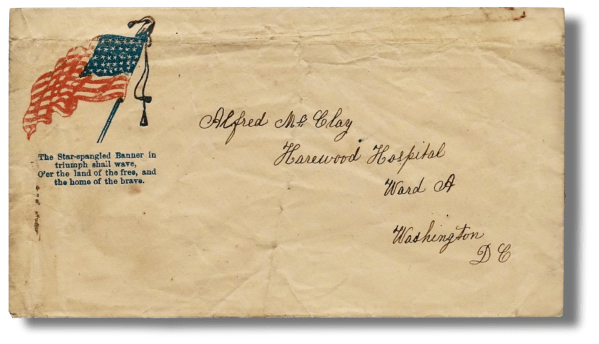 The Star-spangled Banner in
triumph shall wave,
O'er the land of the free, and
the home of the brave.
Alfred Mc Clay
Harewood Hospital
Ward A
Washington
D C